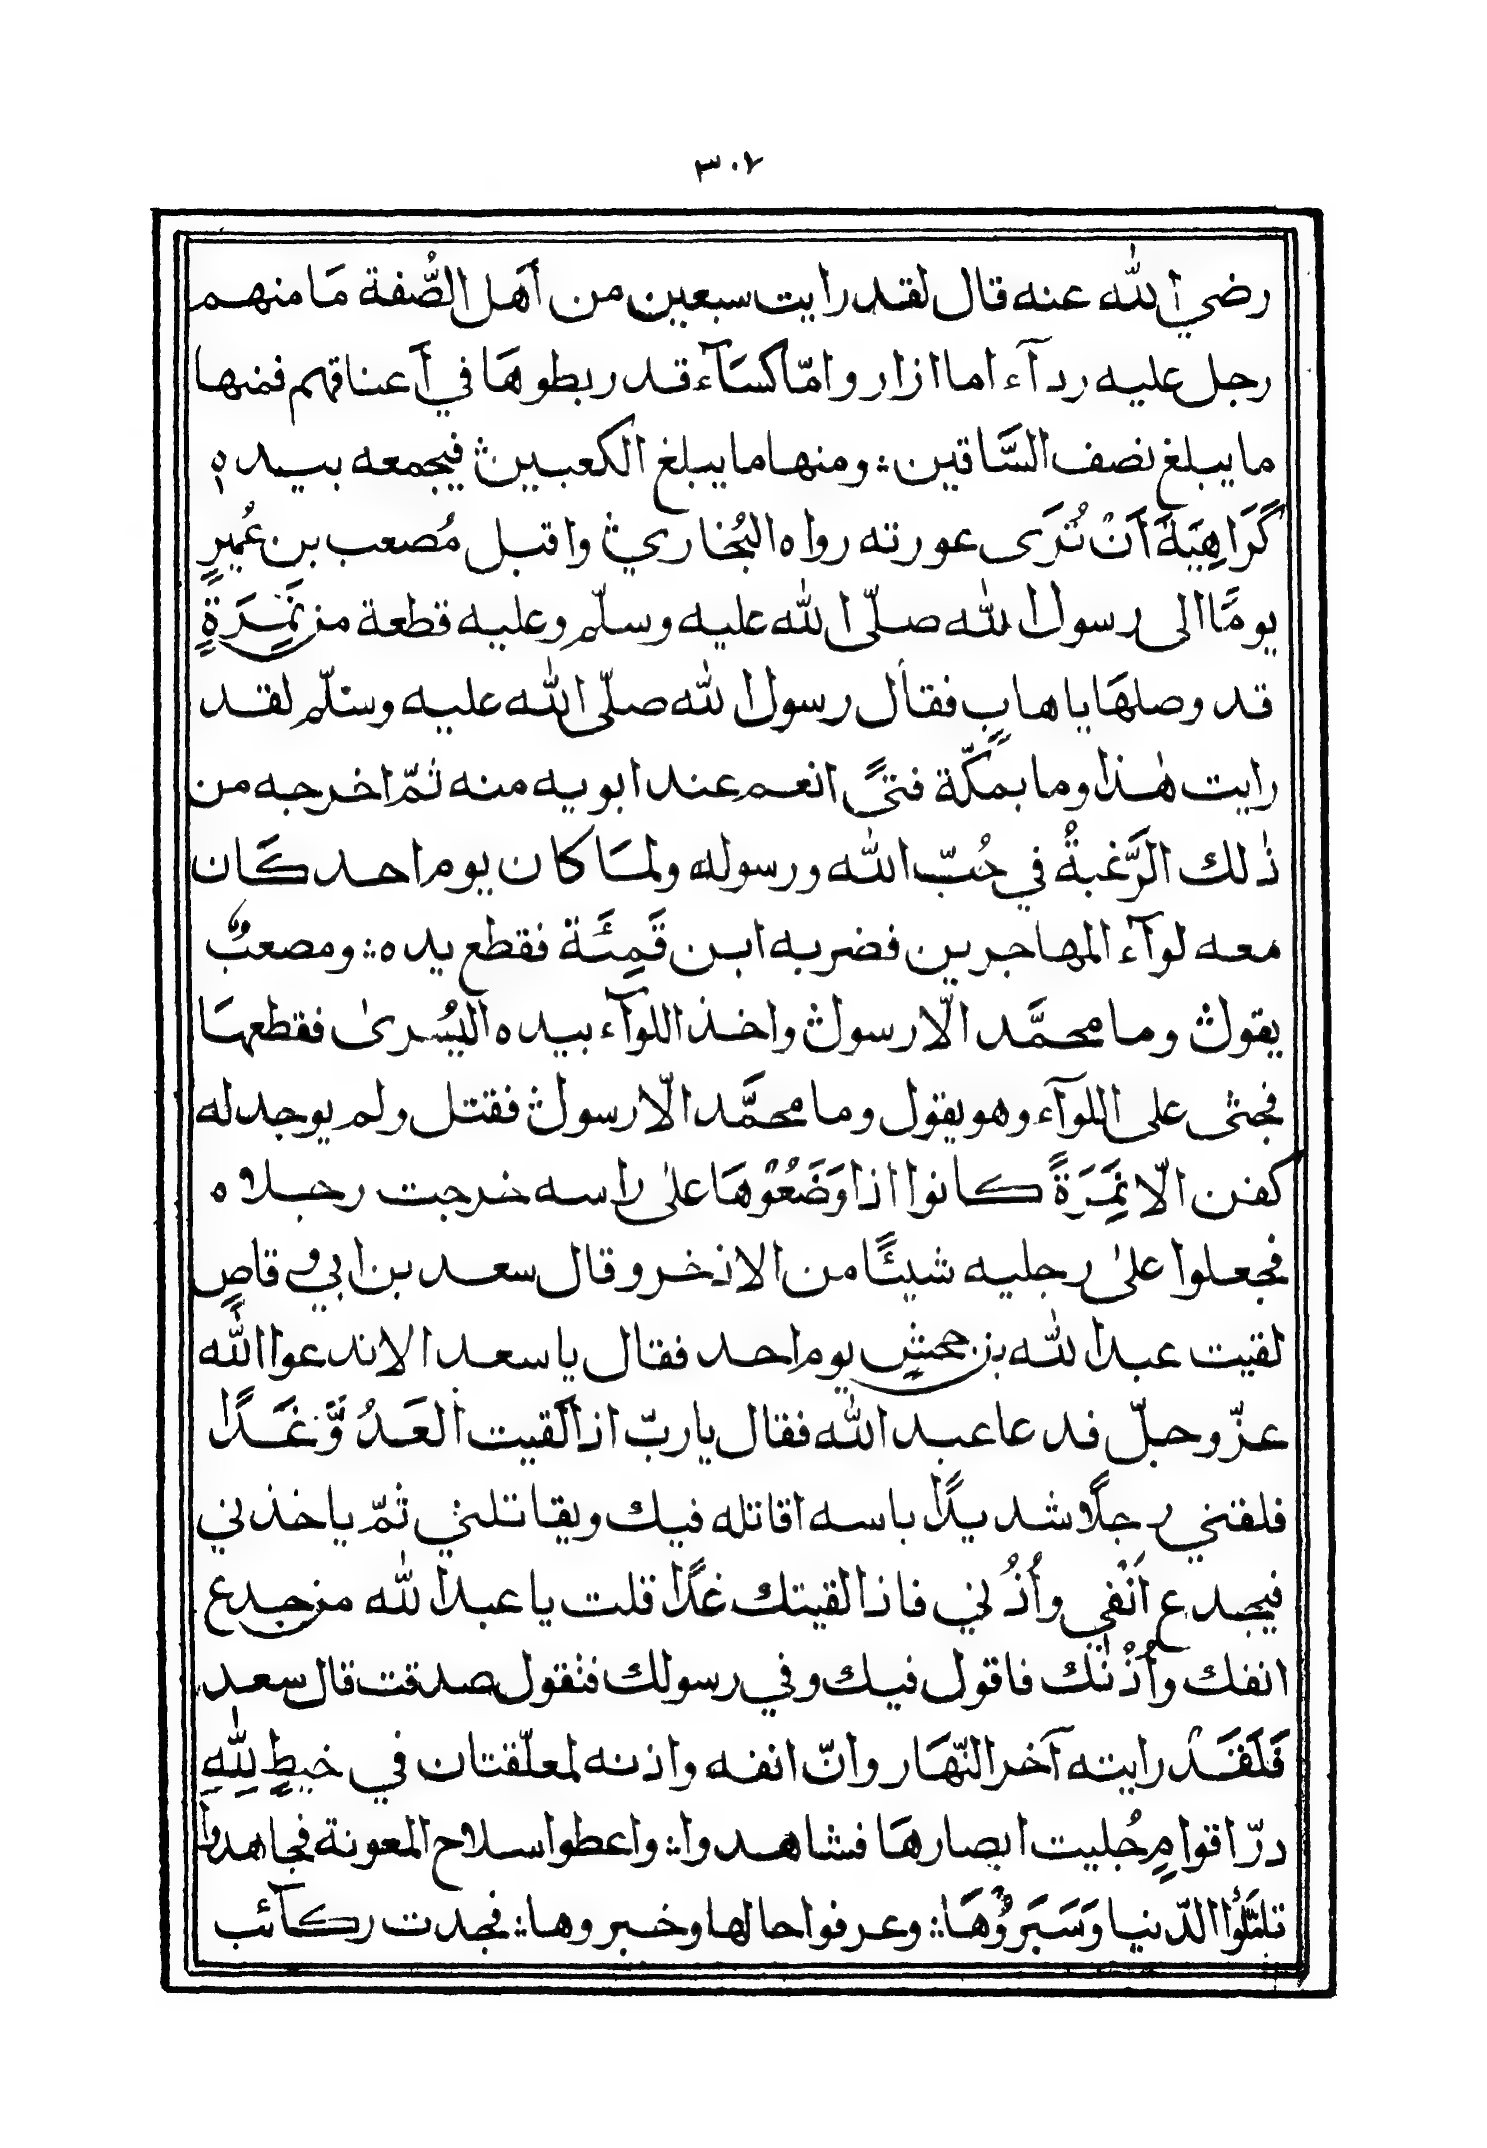 ٣٠٧
رضي الله عنه قال لقد رايت سبعين من أهل الصُّفة مَا منهم
رجل عليه ردآء اما ازار وامّا كسَآء قد ربطوهَا في أعناقهم فمنها
ما يبلغ نصف السَّاقين ؞ ومنها ما يبلغ الكعبين ؞ فيجمعه بيده
كَرَاهِيَةَ أَنْ تُرَى عورته رواه البُخاري ؞ واقبل مُصعب بن عُميرٍ
يومًا الى رسول الله صلّى الله عليه وسلّم وعليه قطعة من نَمِرَةٍ
قد وصلهَا باهابٍ فقال رسول الله صلّى الله عليه وسلّم لقد
رايت هٰذا وما بمكّة فتىً انعم عند ابويه منه ثمّ اخرجه من
ذٰلك الرَّغبةُ في حُبّ الله ورسوله ولمَا كان يوم احد كَان
معه لوآء المهاجرين فضربه ابن قَمِئَة فقطع يده ؞ ومصعبٌ
يقول ؞ وما محمَّد الّا رسول ؞ واخذ اللوآء بيده اليُسرىٰ فقطعهَا
فجثى على اللوآء وهو يقول وما محمَّد الّا رسول ؞ فقتل ولم يوجد له
كفن الّا نَمِرَةً كانوا اذا وَضَعُوْهَا علىٰ راسه خرجت رجلاه
فجعلوا علىٰ رجليه شيئًا من الاذخر وقال سعد بن ابي وقاص
لقيت عبد الله بن جحشٍ يوم احد فقال يا سعد الا ندعوا اللّٰه
عزّ وجلّ فدعا عبد اللّٰه فقال يا ربّ اذا لقيت العَدُوَّ غَدًا
فلقني رجلًا شديدًا باسه اقاتله فيك ويقاتلني ثمّ ياخذني
فيجدع أَنْفي وأُذُني فاذا لقيتك غدًا قلت يا عبد الله من جدع
انفك وأُذْنك فاقول فيك وفي رسولك فتقول صدقت قال سعد
فَلَقَدْ رايته آخر النّهَار وانّ انفه واذنه لمعلّقتان في خيطٍ لِلّٰهِ
درّ اقوامٍ جُليت ابصارهَا فشاهدوا ؞ واعطوا سلاح المعونة فجاهدوا
تلمَّلُوا الدّنيا وَسَبَرُوْهَا ؞ وعرفوا حالها وخبروها ؞ فجدت ركآئب